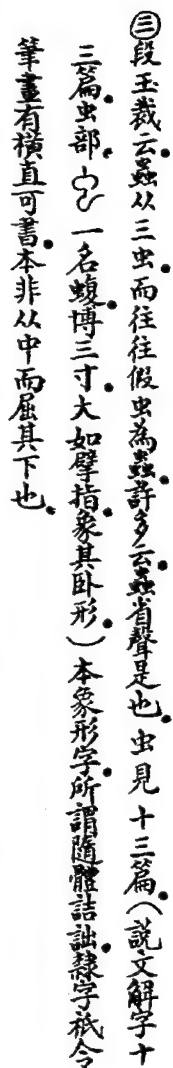 ㊂段玉裁云蟲从三虫而往往假虫為蟲許多云蟲省聲是也虫見十三篇(說文解字十
三篇虫部𧈢一名蝮博三寸大如擘指象其卧形)本象形字所謂隨體詰詘隸字祇令
筆畫有橫直可書本非从中而屈其下也